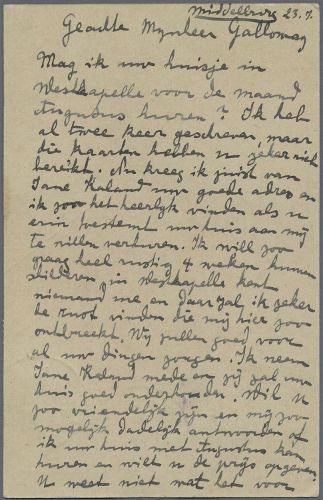 Middelburg 23.7.
Geachte Mynheer Galloway
Mag ik uw huisje in
Westkapelle voor de maand
Augustus huren? Ik heb
al twee keer geschreven, maar
die kaarten hebben u zeker niet
bereikt. Nu kreeg ik juist van
Jane Kaland uw goede adres en
ik zoo het heerlijk vinden als u
erin toestemt uw huis aan mij
te willen verhuren. Ik will zoo
graag heel rustig 4 weken kunnen
schilderen, in Westkapelle kent
niemand me en daar zal ik zeker
de rust vinden die mij hier zoo
ontbreekt. Wy zullen goed voor
al uw dingen zorgen. Ik neem
Jane Kaland mede en zij zal uw
huis goed onderhouden. Wil u
zoo vriendelijk zijn en mij zoo
mogelijk dadelijk antwoorden of
ik uw huis met Augustus kan
huren en wilt u de prijs opgeven.
U weet niet wat het voor